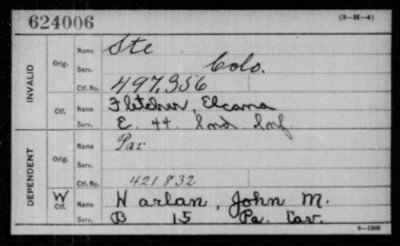 624006
(3-H-4)
INVALID
Orig. Name Ste
Serv. Colo.
Ctf. No. 497,356
Ctf. Name Fletcher, Elcana
Serv. E. 44. Ind Inf
DEPENDENT
Orig. Name Par
Serv.
Ctf. No. 421832
W Ctf. Name Harlan, John M.
Serv. B 15 Pa. Cav.